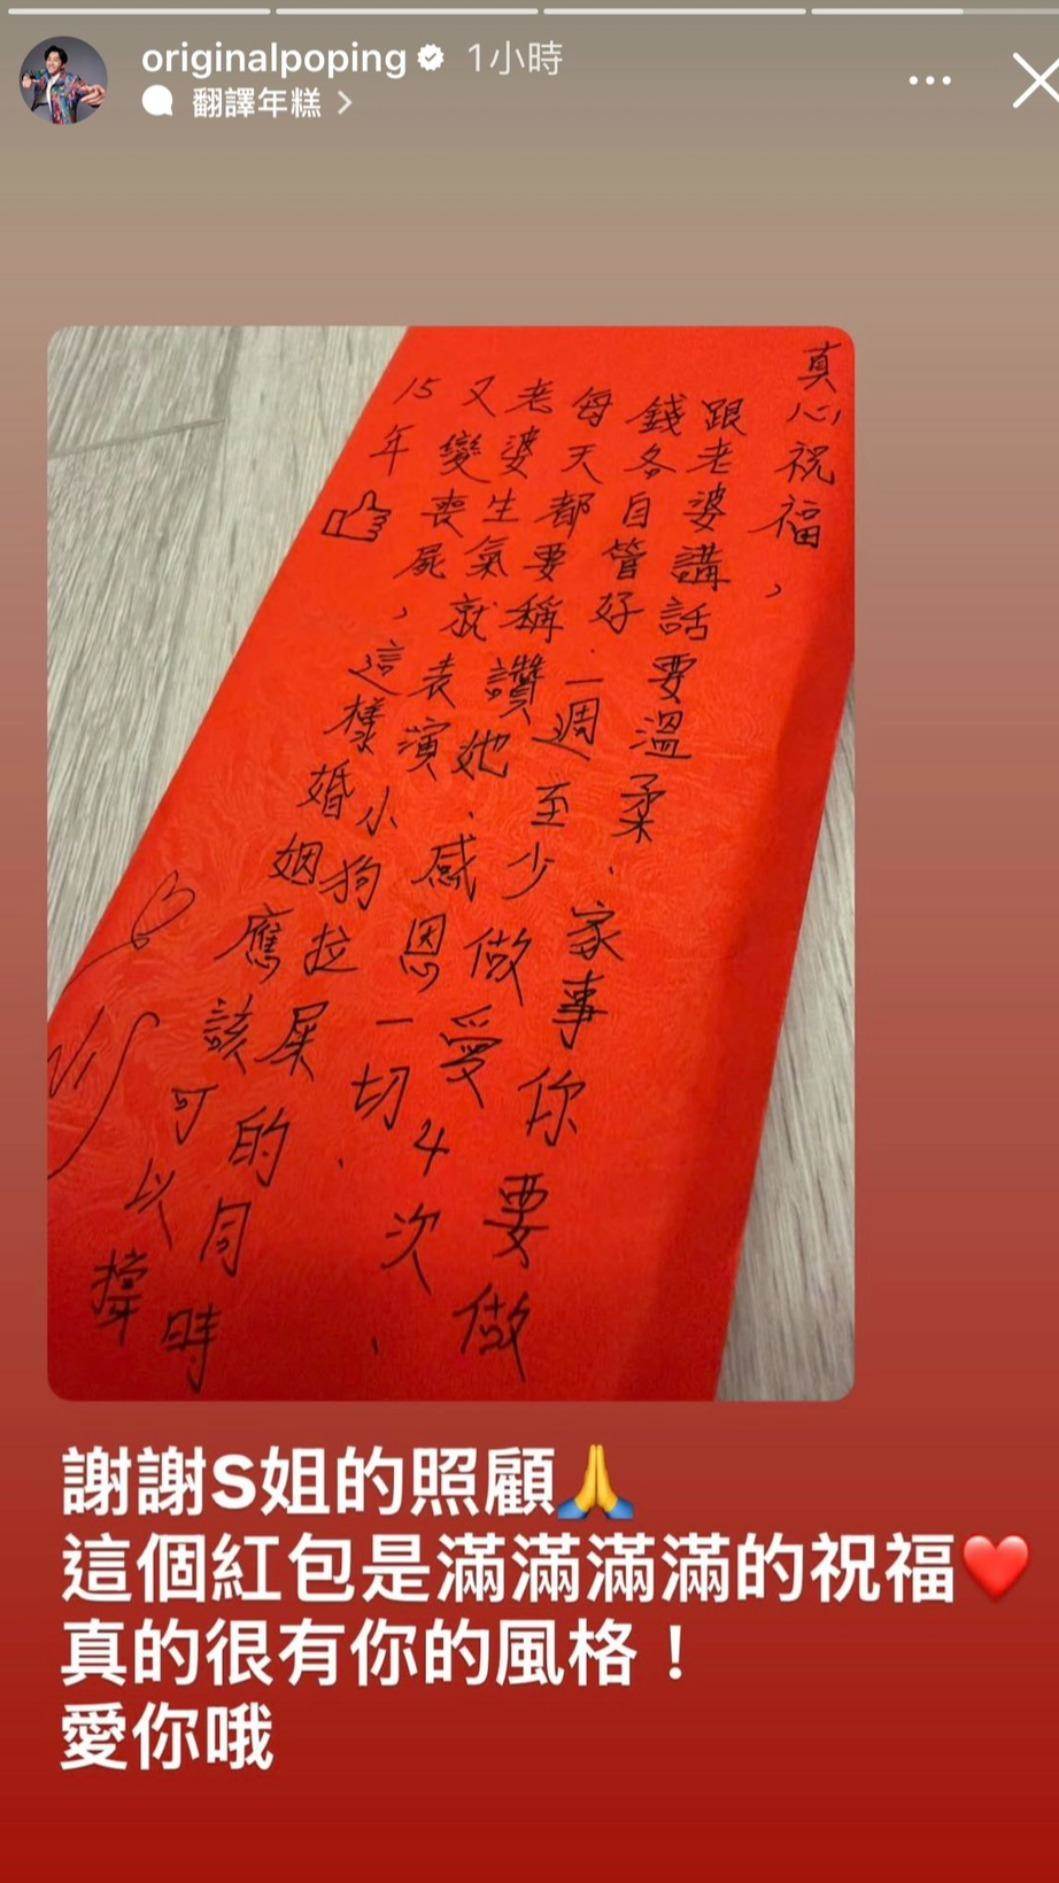 originalpoping 1小時
翻譯年糕
真心祝福,
跟老婆講話要溫柔.家事你要做
錢各自管好.一週至少做愛4次、
每天都要稱讚她、感恩一切、
老婆生氣就表演小狗拉屎的同時
又變喪屍,這樣婚姻應該可以撐
15年
謝謝S姐的照顧🙏
這個紅包是滿滿滿滿的祝福❤️
真的很有你的風格！
愛你哦